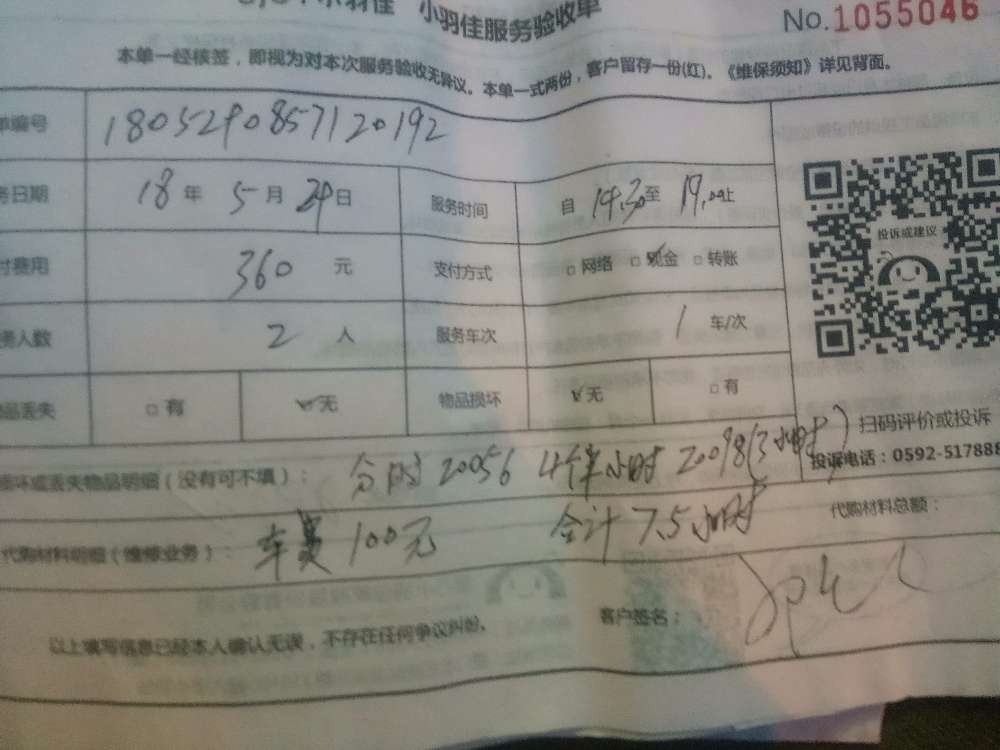 小羽佳 小羽佳服务验收单 No.1055046
本单一经核签，即视为对本次服务验收无异议。本单一式两份，客户留存一份(红)。《维保须知》详见背面。
单编号 18052908571120192
务日期 18年5月29日 服务时间 自14.30至19.00止
付费用 360元 支付方式 □网络 ☑现金 □转账
投诉或建议
务人数 2人 服务车次 1车/次
品丢失 □有 ☑无 物品损坏 ☑无 □有
扫码评价或投诉
损坏或丢失物品明细（没有可不填）： 分时20056 4个半小时 20098(3小时)
投诉电话：0592-517888
代购材料明细（维修业务）： 车费100元 合计7.5小时 代购材料总额：
以上填写信息已经本人确认无误，不存在任何争议纠纷。 客户签名：